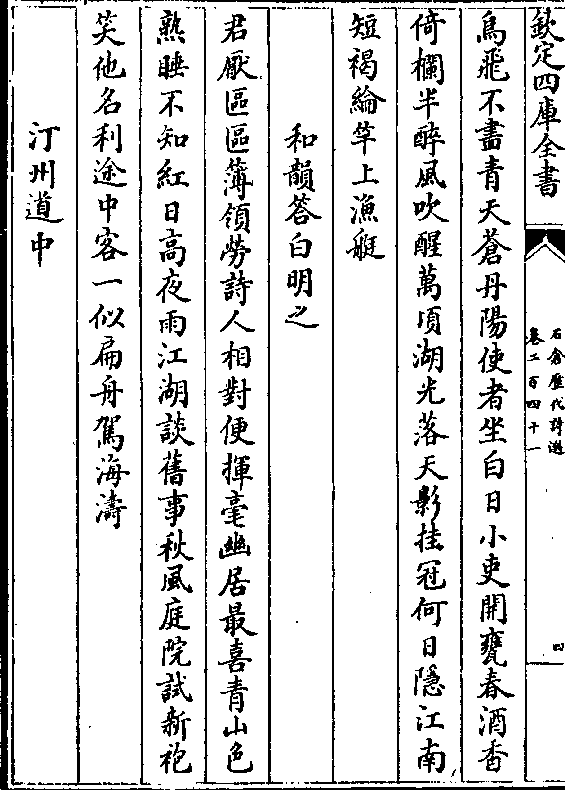 欽定四庫全書
石倉歷代詩選
卷二百四十一
四
鳥飛不盡青天蒼丹陽使者坐白日小吏開甕春酒香
倚欄半醉風吹醒萬頃湖光落天影挂冠何日隱江南
短褐綸竿上漁艇
和韻答白明之
君厭區區簿領勞詩人相對便揮毫幽居最喜青山色
熟睡不知紅日高夜雨江湖談舊事秋風庭院試新袍
笑他名利途中客一似扁舟駕海濤
汀州道中